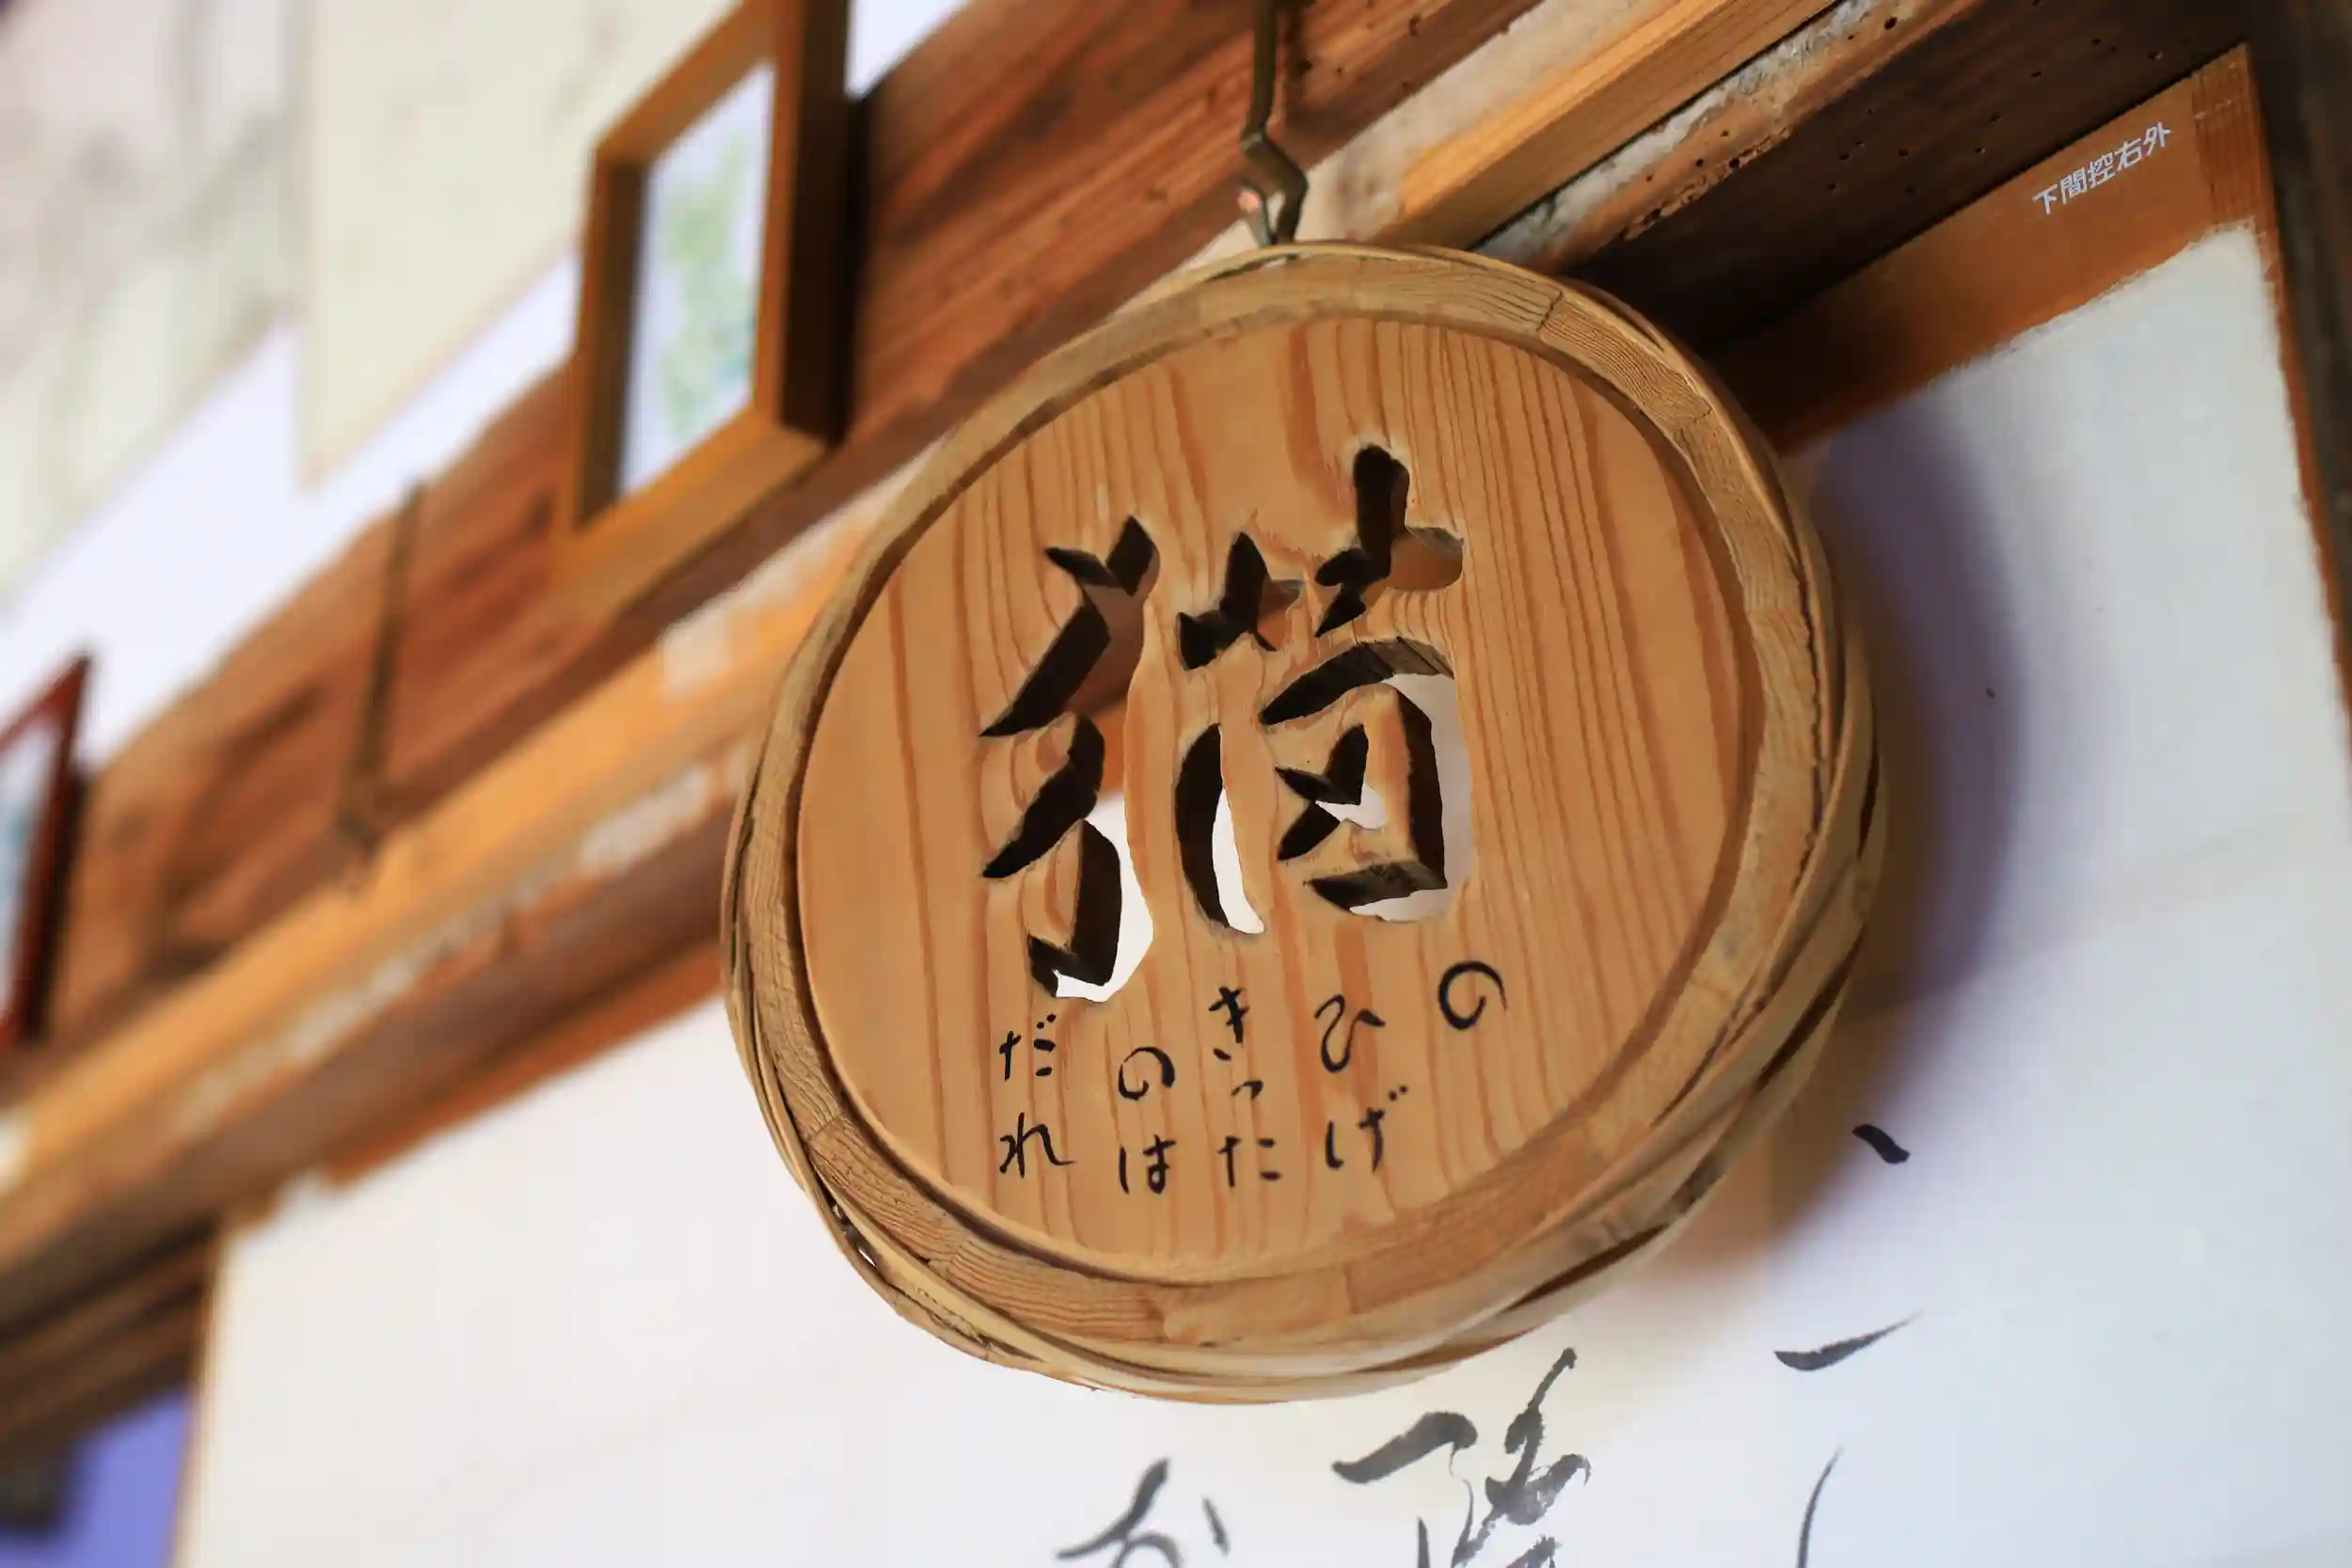 猫
の
ひげ
きった
のは
だれ
下間控右外